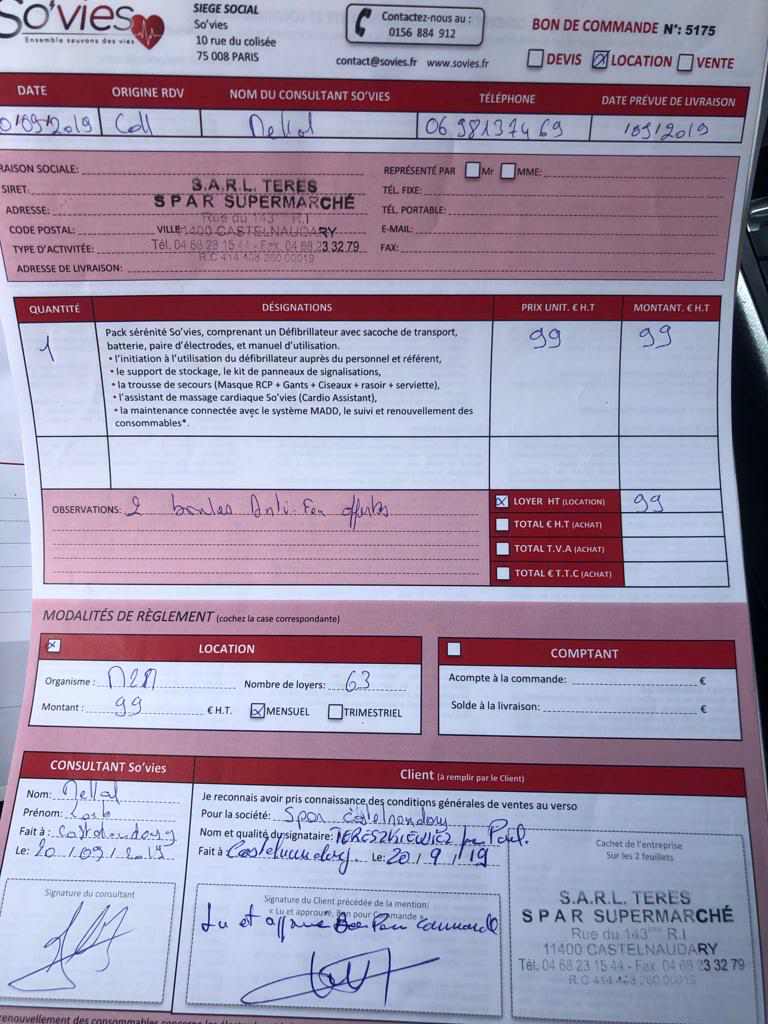 So'vies
Ensemble sauvons des vies
SIEGE SOCIAL
So'vies
10 rue du colisée
75 008 PARIS
Contactez-nous au :
0156 884 912
contact@sovies.fr www.sovies.fr
BON DE COMMANDE N°: 5175
DEVIS LOCATION VENTE
DATE ORIGINE RDV NOM DU CONSULTANT SO'VIES TÉLÉPHONE DATE PRÉVUE DE LIVRAISON
0/09/2019 Call Mellal 06 98137469 /09/2019
RAISON SOCIALE:
SIRET:
ADRESSE:
CODE POSTAL: VILLE:
TYPE D'ACTIVITÉE:
ADRESSE DE LIVRAISON:
S.A.R.L. TERES
SPAR SUPERMARCHÉ
Rue du 143 R.I
11400 CASTELNAUDARY
Tél. 04 68 23 15 44 - Fax. 04 68 23 32 79
REPRÉSENTÉ PAR Mr MME:
TÉL. FIXE:
TÉL. PORTABLE:
E-MAIL:
FAX:
QUANTITÉ DÉSIGNATIONS PRIX UNIT. € H.T MONTANT. € H.T
1 99 99
Pack sérénité So'vies, comprenant un Défibrillateur avec sacoche de transport,
batterie, paire d'électrodes, et manuel d'utilisation.
• l'initiation à l'utilisation du défibrillateur auprès du personnel et référent,
• le support de stockage, le kit de panneaux de signalisations,
• la trousse de secours (Masque RCP + Gants + Ciseaux + rasoir + serviette),
• l'assistant de massage cardiaque So'vies (Cardio Assistant),
• la maintenance connectée avec le système MADD, le suivi et renouvellement des
consommables*.
OBSERVATIONS: 2 boules Anti-Feu offertes
LOYER HT (LOCATION) 99
TOTAL € H.T (ACHAT)
TOTAL T.V.A (ACHAT)
TOTAL € T.T.C (ACHAT)
MODALITÉS DE RÈGLEMENT (cochez la case correspondante)
LOCATION
Organisme : Nombre de loyers: 63
Montant : 99 € H.T. MENSUEL TRIMESTRIEL
COMPTANT
Acompte à la commande: €
Solde à la livraison: €
CONSULTANT So'vies
Nom: Mellal
Prénom:
Fait à : Castelnaudary
Le: 20/09/2019
Signature du consultant
Client (à remplir par le Client)
Je reconnais avoir pris connaissance des conditions générales de ventes au verso
Pour la société: Spar Castelnaudary
Nom et qualité du signataire: TERESZKIEWICZ Paul.
Fait à Castelnaudary. Le: 20/9/19
Signature du Client précédée de la mention:
« Lu et approuvé, Bon pour Commande »
Lu et approuvé Bon Pour Commande
Cachet de l'entreprise
Sur les 2 feuillets
S.A.R.L. TERES
SPAR SUPERMARCHÉ
Rue du 143 R.I
11400 CASTELNAUDARY
Tél. 04 68 23 15 44 - Fax. 04 68 23 32 79